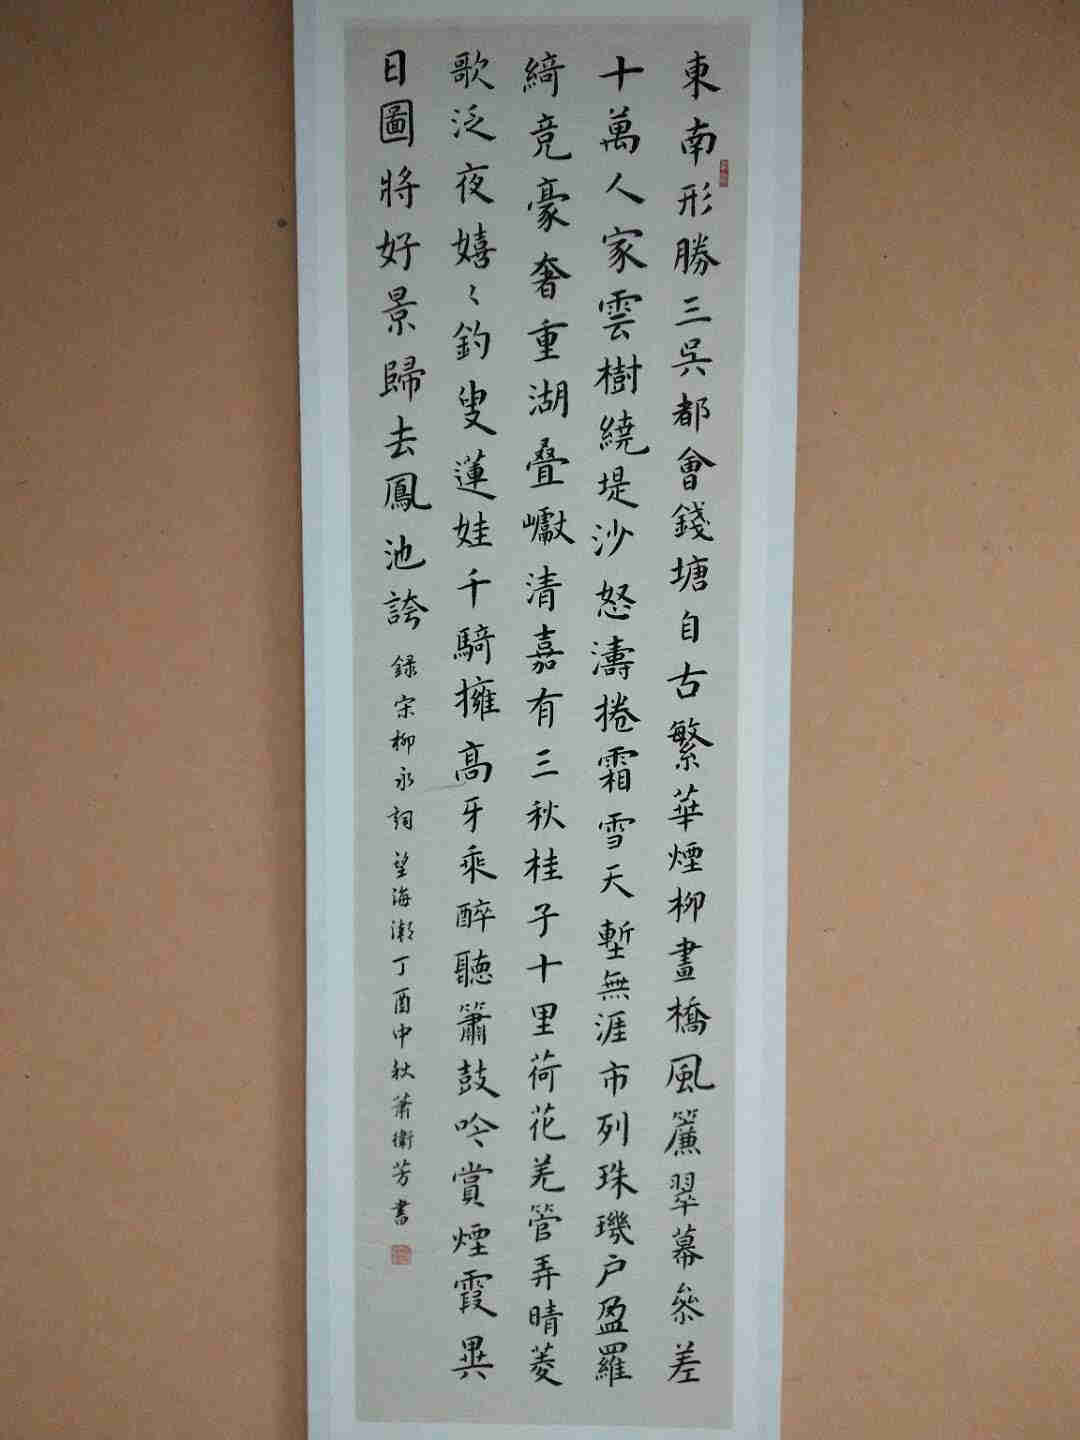 東南形勝三吳都會錢塘自古繁華煙柳畫橋風簾翠幕參差
十萬人家雲樹繞堤沙怒濤捲霜雪天塹無涯市列珠璣户盈羅
綺竞豪奢重湖叠巘清嘉有三秋桂子十里荷花羌管弄晴菱
歌泛夜嬉〻釣叟蓮娃千騎擁高牙乘醉聽簫鼓吟賞煙霞異
日圖將好景歸去鳳池誇
録宋柳永詞望海潮丁酉中秋萧衛芳書